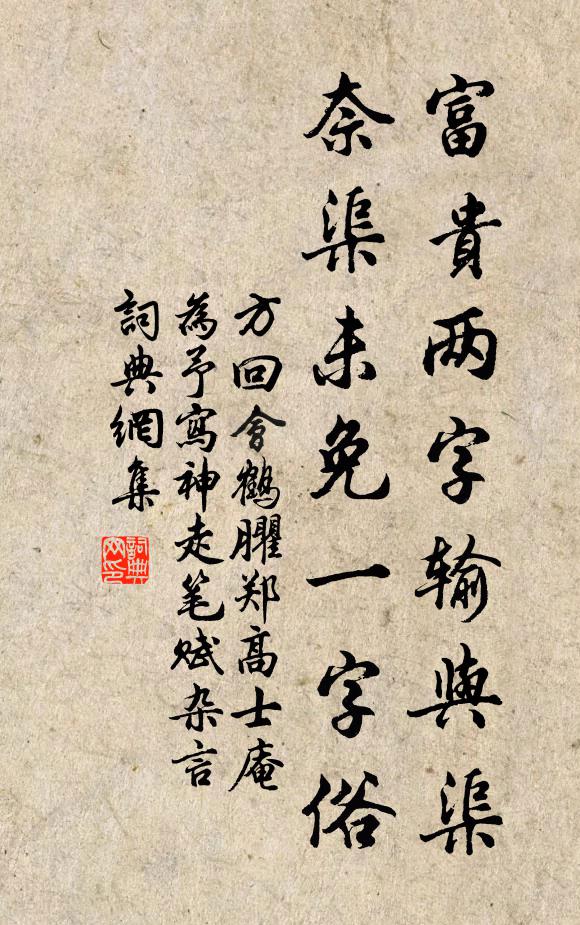 富貴两字输與渠
奈渠未免一字俗
方回會鶴臞郑高士庵
為予寫神走笔赋杂言
詞典網集
詞典
网印